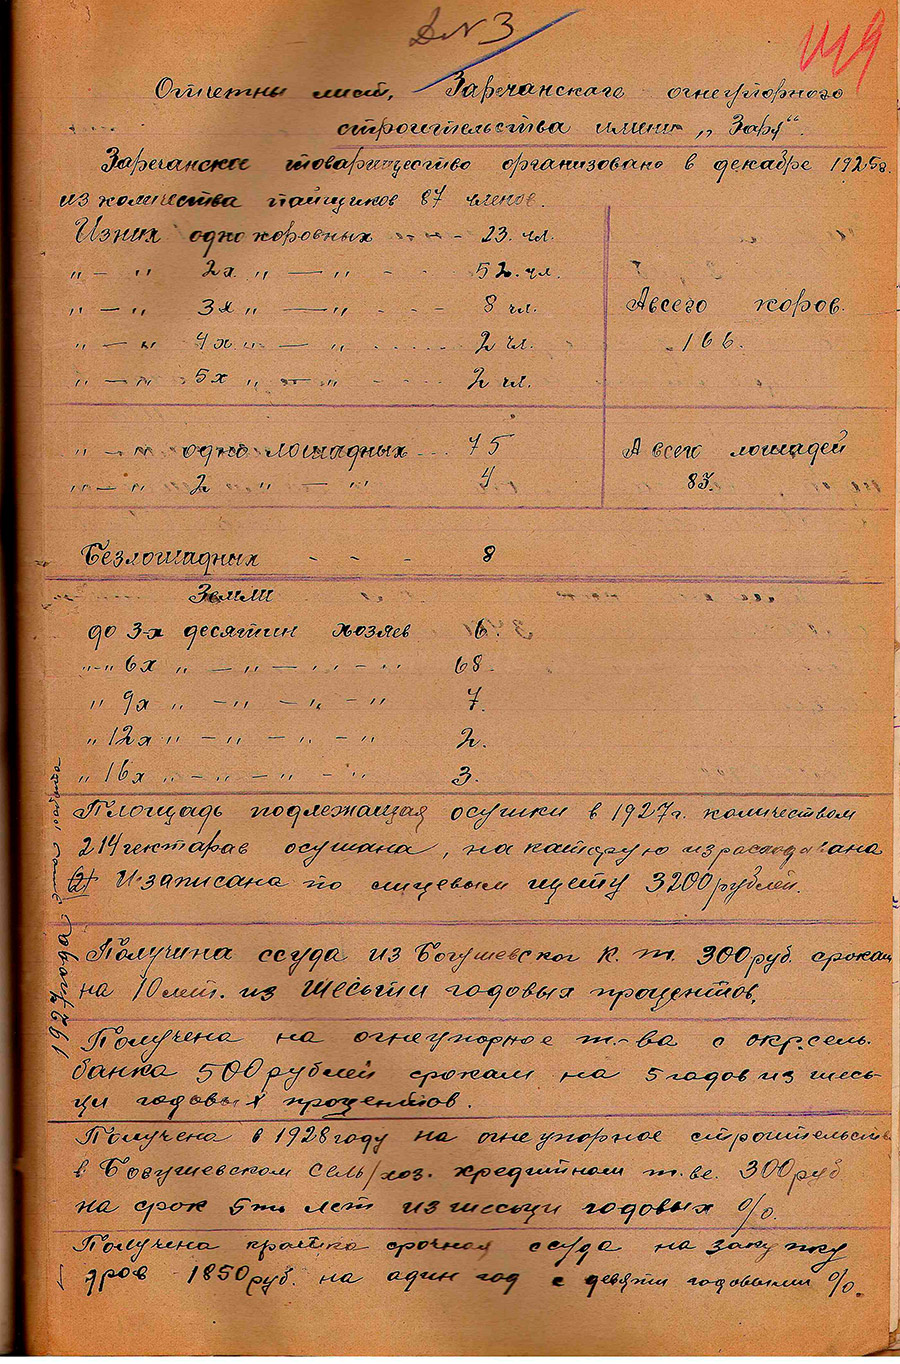 Д№3
Отчетны лист, Заречанскаго огнеупорного
строительства имени „Заря“.
Заречанское товарищество организовано в декабре 1925г.
из количества пайщиков 87 членов.
Изних одно коровных - - - 23. чл.
„ — „ 2х „ — „ - - - 52. чл.
„ — „ 3х „ — „ - - - 8 чл. Авсего коров.
„ — „ 4х „ — „ - - - 2 чл. 166.
„ — „ 5х „ — „ - - - 2 чл.
„ — „ одно лошадных - - - 75 А всего лошадей
„ — „ 2 „ — „ 4 83.
Безлошадных - - - 8
Земли
до 3-х десятин хозяев 6.
„ — „ 6х „ — „ — „ — „ 68.
„ 9х „ — „ — „ — „ 7.
„ 12х „ — „ — „ — „ 2.
„ 16х „ — „ — „ — „ 3.
Площадь подлежащая осушки в 1927г. количеством
214 гектарав осушана, на каторую израсходавана
И записана по лицевым щету 3200 рублей.
Получина ссуда из Богушевског К. т. 300 руб. срокам
на 10 лет. из шесьти годовых процентов.
Получена на огнеупорное т-ва с окр.сель.
банка 500 рублей срокам на 5 годов из шесь-
ти годовых процентов.
Получена в 1928 году на огнеупорное строительств
в Богушевском Сель/хоз. кредитном т.ве. 300 руб
на срок 5ть лет из шесьти годовых %.
Получена кратка срочная ссуда на закупку
дров 1850 руб. на адин год с девяти годовыми %.
1927 года